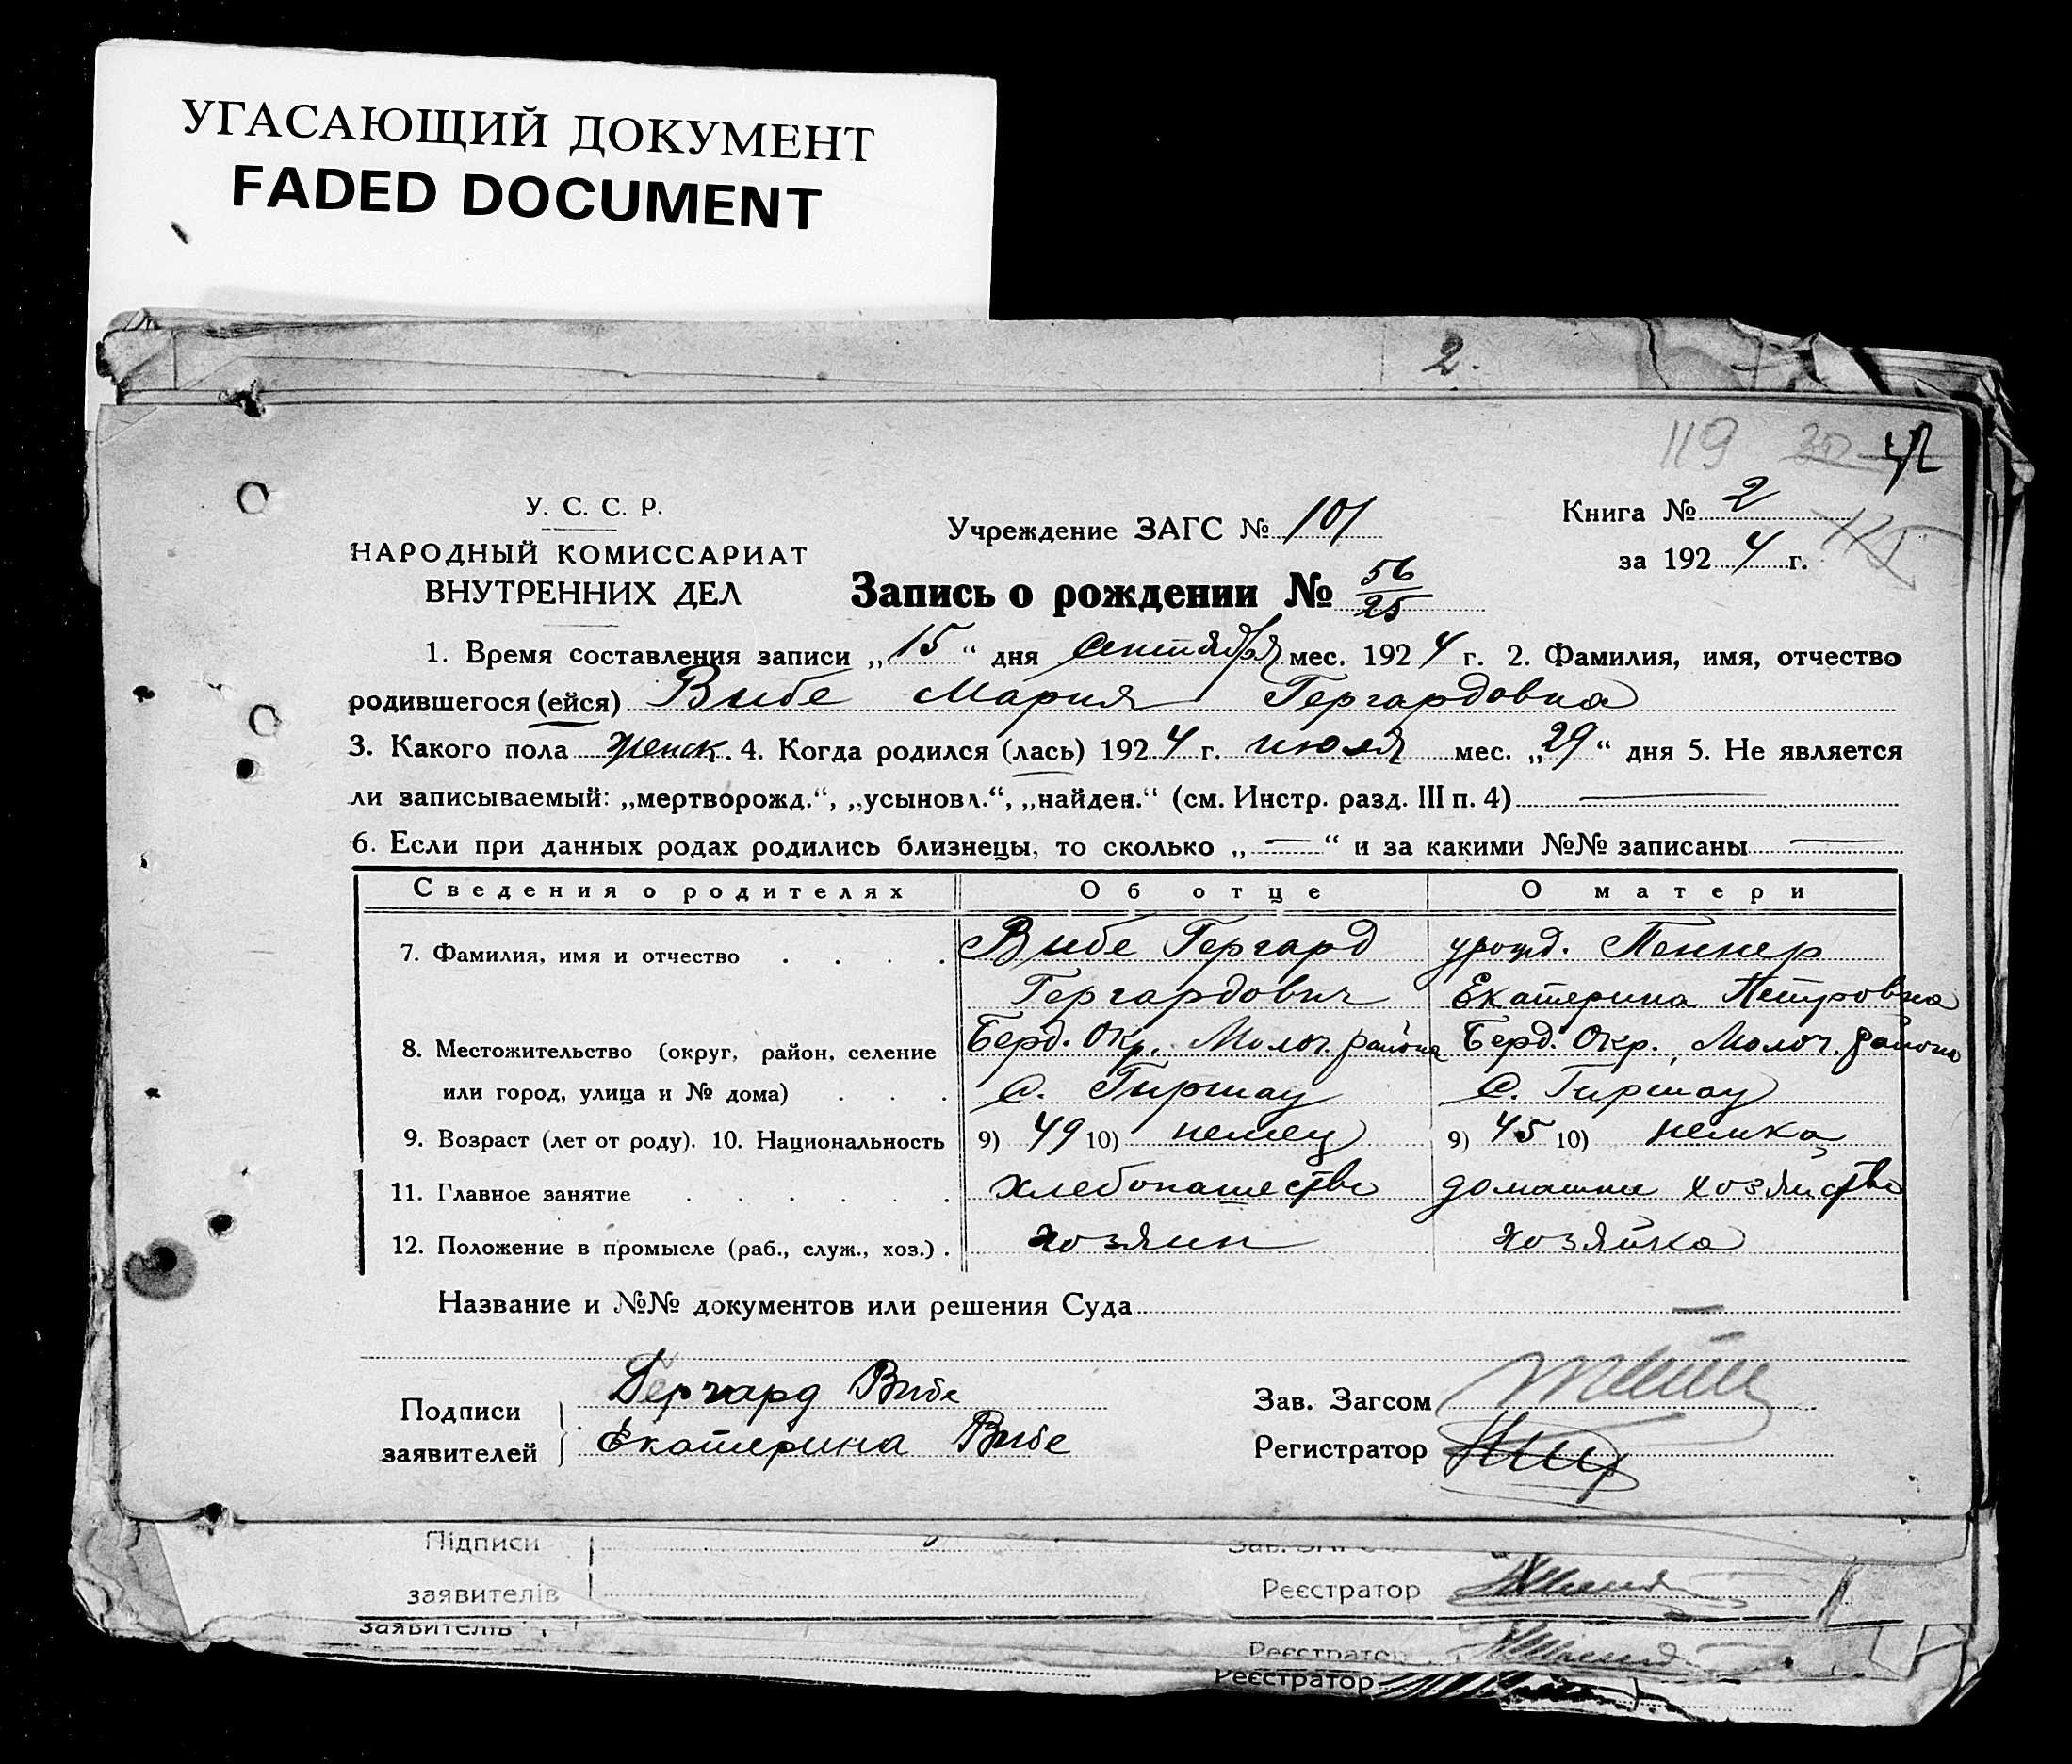 УГАСАЮЩИЙ ДОКУМЕНТ
FADED DOCUMENT
2.
119
У. С. С. Р.
НАРОДНЫЙ КОМИССАРИАТ
ВНУТРЕННИХ ДЕЛ
Учреждение ЗАГС № 101
Книга № 2
за 1924 г.
Запись о рождении № 56/25
1. Время составления записи „15“ дня сентября мес. 1924 г. 2. Фамилия, имя, отчество
родившегося (ейся) Вибе Мария Гергардовна
3. Какого пола женск. 4. Когда родился (лась) 1924 г. июля мес. „29“ дня 5. Не является
ли записываемый: „мертворожд.“, „усыновл.“, „найден.“ (см. Инстр. разд. III п. 4) —
6. Если при данных родах родились близнецы, то сколько „—“ и за какими №№ записаны —
Сведения о родителях Об отце О матери
7. Фамилия, имя и отчество . . . . Вибе Гергард урожд. Пеннер
Гергардович Екатерина Петровна
8. Местожительство (округ, район, селение Берд. Окр., Молоч. района Берд. Окр., Молоч. района
или город, улица и № дома) . . . с. Гиршау с. Гиршау
9. Возраст (лет от роду). 10. Национальность 9) 49 10) немец 9) 45 10) немка
11. Главное занятие . . . . . . хлебопашество домашнее хозяйство
12. Положение в промысле (раб., служ., хоз.) . хозяин хозяйка
Название и №№ документов или решения Суда —
Подписи
заявителей
Гергард Вибе
Екатерина Вибе
Зав. Загсом
Регистратор
Підписи
заявителів
Реєстратор
заявителів
Реєстратор
Реєстратор